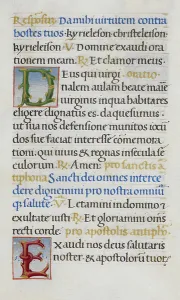 Responsio. Da mihi virtutem contra
hostes tuos. Kyrieleison. christeleison.
kyrieleison. V. Domine exaudi ora
tionem meam. R. Et clamor meus.
Deus qui virgi oratio
nalem aulam beate marie
virginis in qua habitares
eligere dignatus es. da quesumus.
ut sua nos defensione munitos iocū
dos sue facias interesse comemora
tioni. qui vivis & regnas in secula se
culorum. R. Amen. pro sanctis a
tiphona Sancti dei omnes interce
dere dignemini pro nostra omniū
qz salute. V. Letamini in domino r
exultate iusti. R. Et gloriamini omēs
recti corde. pro apostolis antiph
Exaudi nos deus salutaris
noster & apostolorū tuor